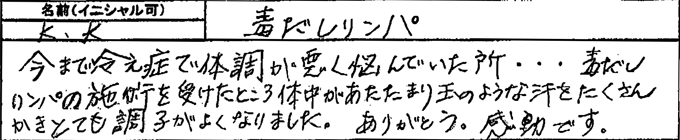 名前(イニシャル可)
K、K 毒だしリンパ
今まで冷え症で体調が悪く悩んでいた所・・・毒だし
リンパの施術を受けたところ体中があたたまり玉のような汗をたくさん
かきとても調子がよくなりました。ありがとう。感動です。